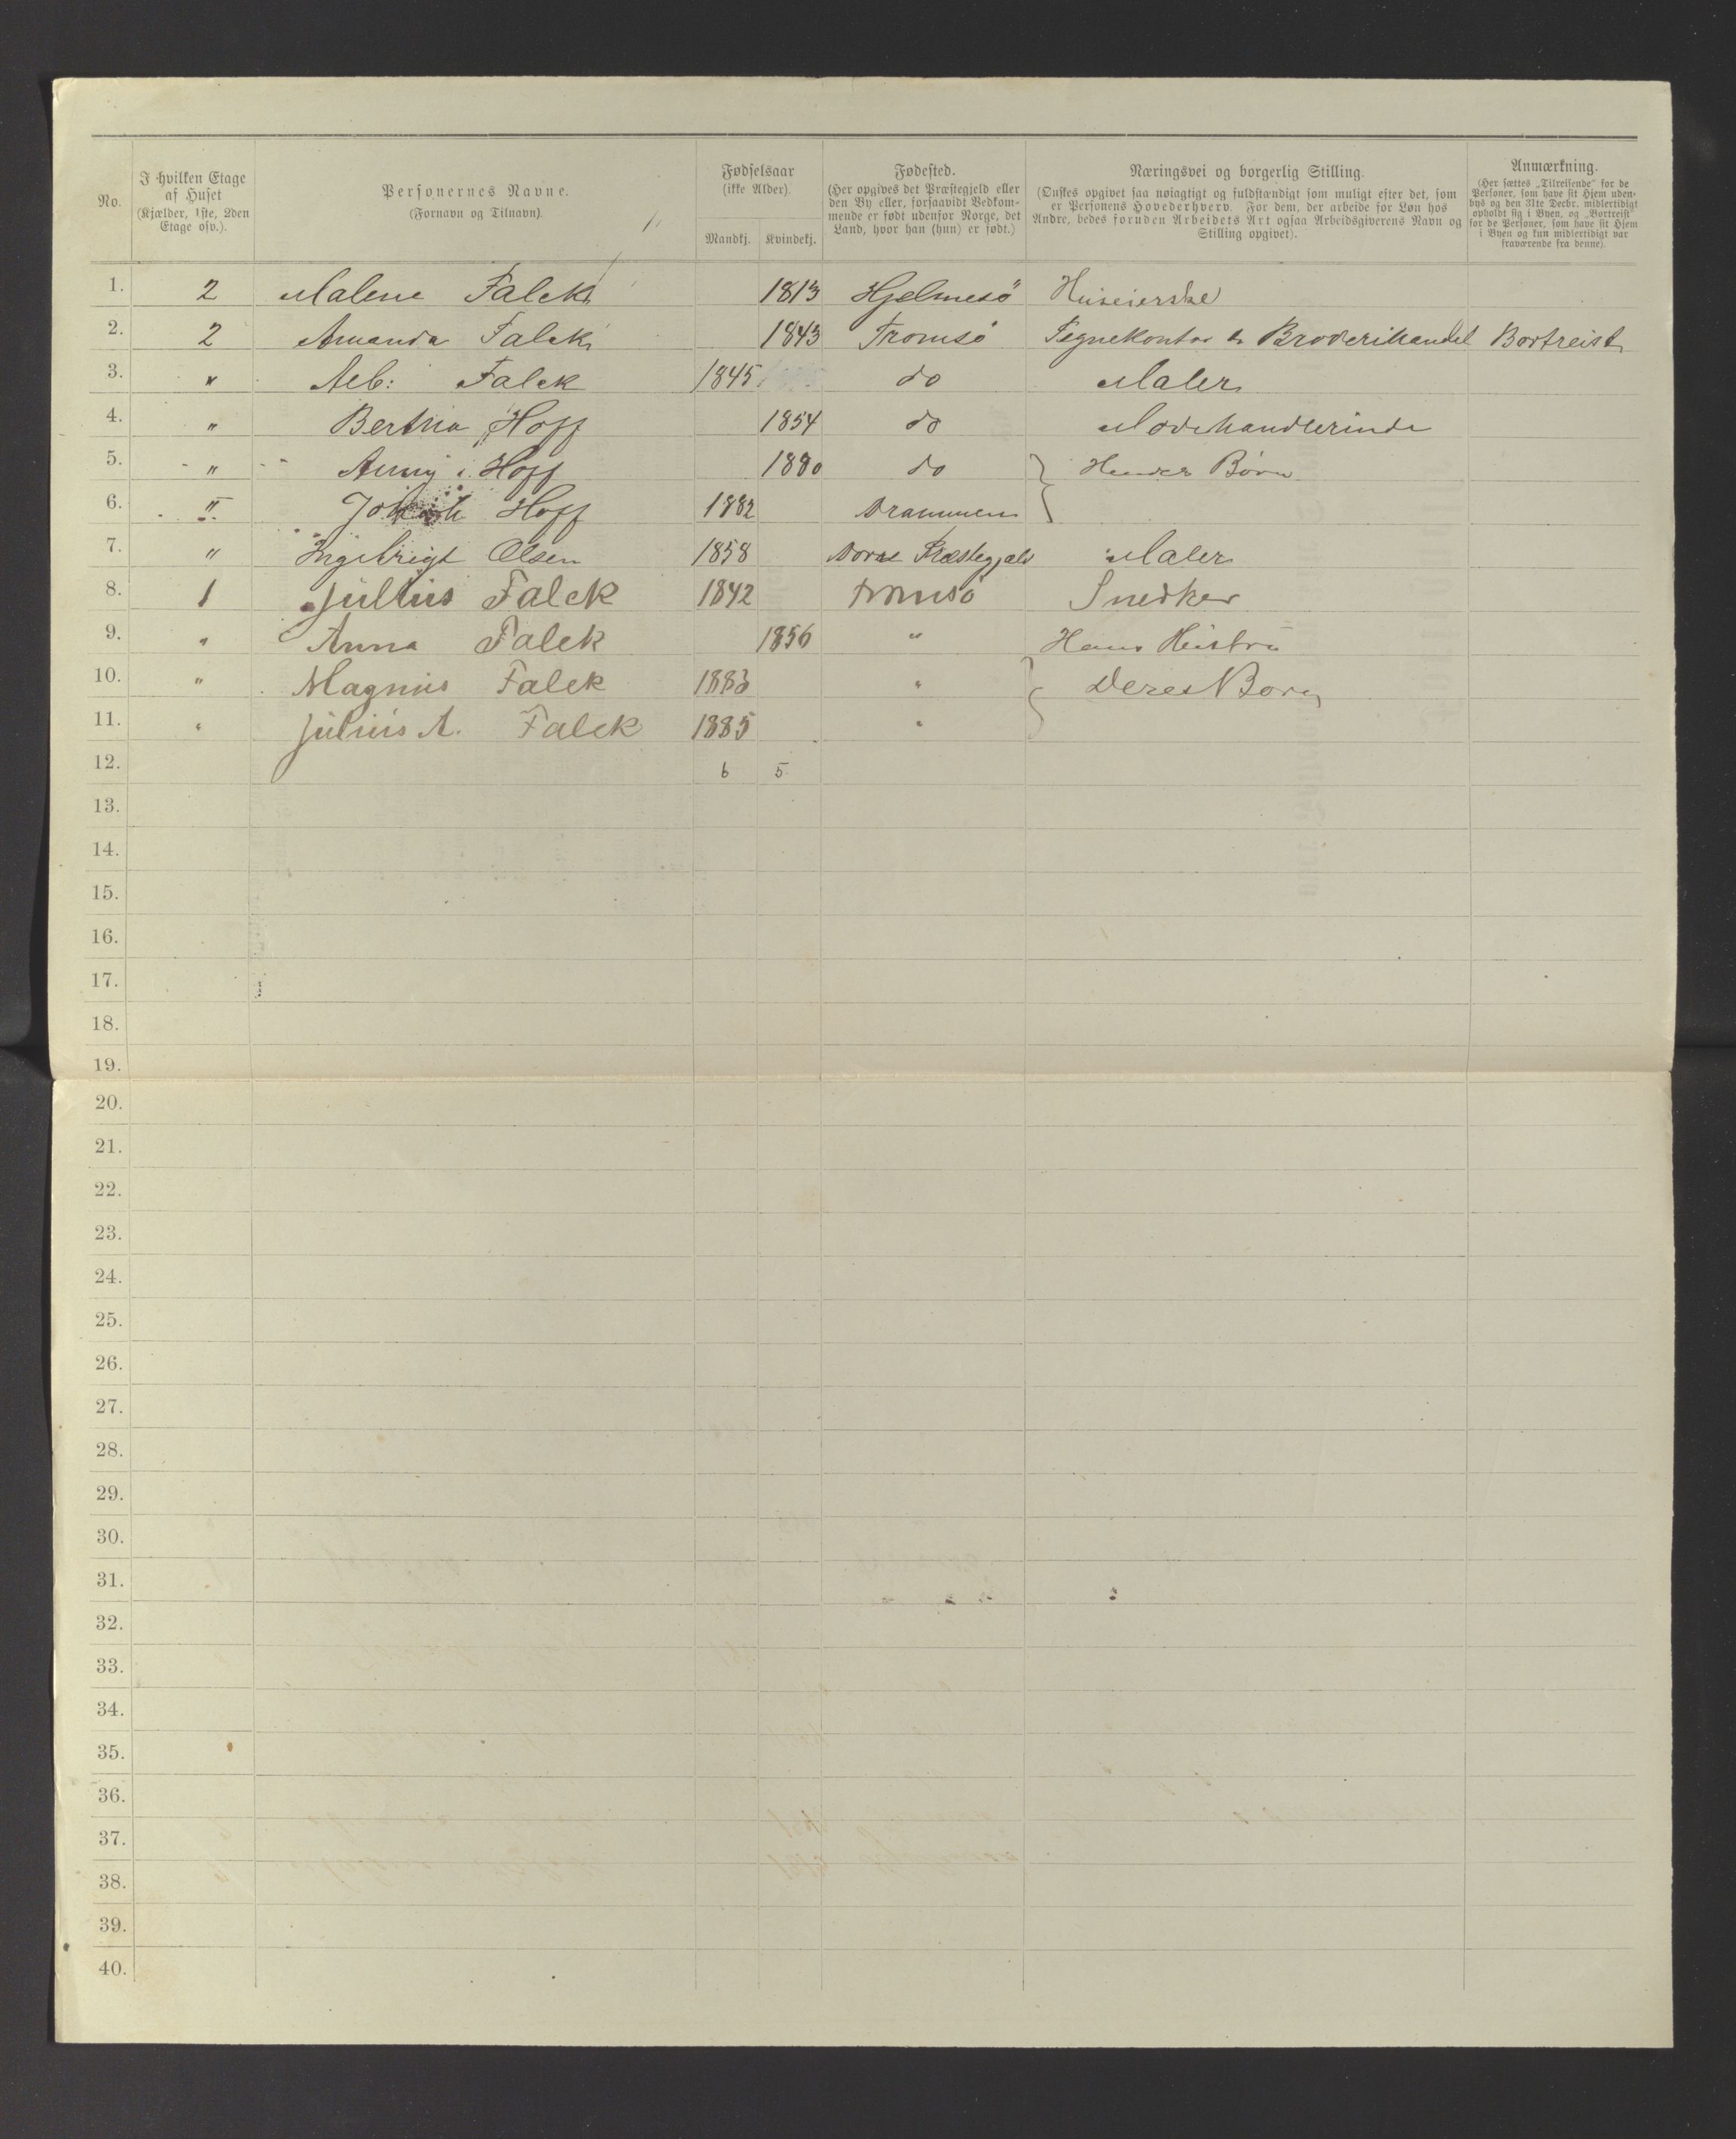 No.
I hvilken Etage af Huset (Kjælder, 1ste, 2den Etage osv.).
Personernes Navne. (Fornavn og Tilnavn).
Fødselsaar (ikke Alder).
Mandkj. Kvindekj.
Fødested. (Her opgives det Præstegjeld eller den By eller, forsaavidt Vedkommende er født udenfor Norge, det Land, hvor han (hun) er født.)
Næringsvei og borgerlig Stilling. (Ønskes opgivet saa nøiagtigt og fuldstændigt som muligt efter det, som er Personens Hovederhverv. For dem, der arbeide for Løn hos Andre, bedes foruden Arbeidets Art ogsaa Arbeidsgiverens Navn og Stilling opgivet).
Anmærkning. (Her sættes „Tilreisende“ for de Personer, som have sit Hjem udenbys og den 31te Decbr. midlertidigt opholdt sig i Byen, og „Bortreist“ for de Personer, som have sit Hjem i Byen og kun midlertidigt var fraværende fra denne).
1. 2 Malene Falck 1813 Hjelmesö Huseierske
2. 2 Amanda Falck 1843 Tromsö Tegnekontor & Broderihandel Bortreist
3. " Alb: Falck 1845 do Maler
4. " Bertha Hoff 1854 do Modehandlerinde
5. " Anny Hoff 1880 do } Hendes Börn
6. " Hoff 1882 Drammen
7. " Ingebrigt Olsen 1858 Præstegjeld Maler
8. 1 Julius Falck 1842 tromsö Snedker
9. " Anna Falck 1856 " Hans Hustru
10. " Magnus Falck 1883 " } Deres Born
11. " Julius A. Falck 1885 "
12. 6 5
13.
14.
15.
16.
17.
18.
19.
20.
21.
22.
23.
24.
25.
26.
27.
28.
29.
30.
31.
32.
33.
34.
35.
36.
37.
38.
39.
40.